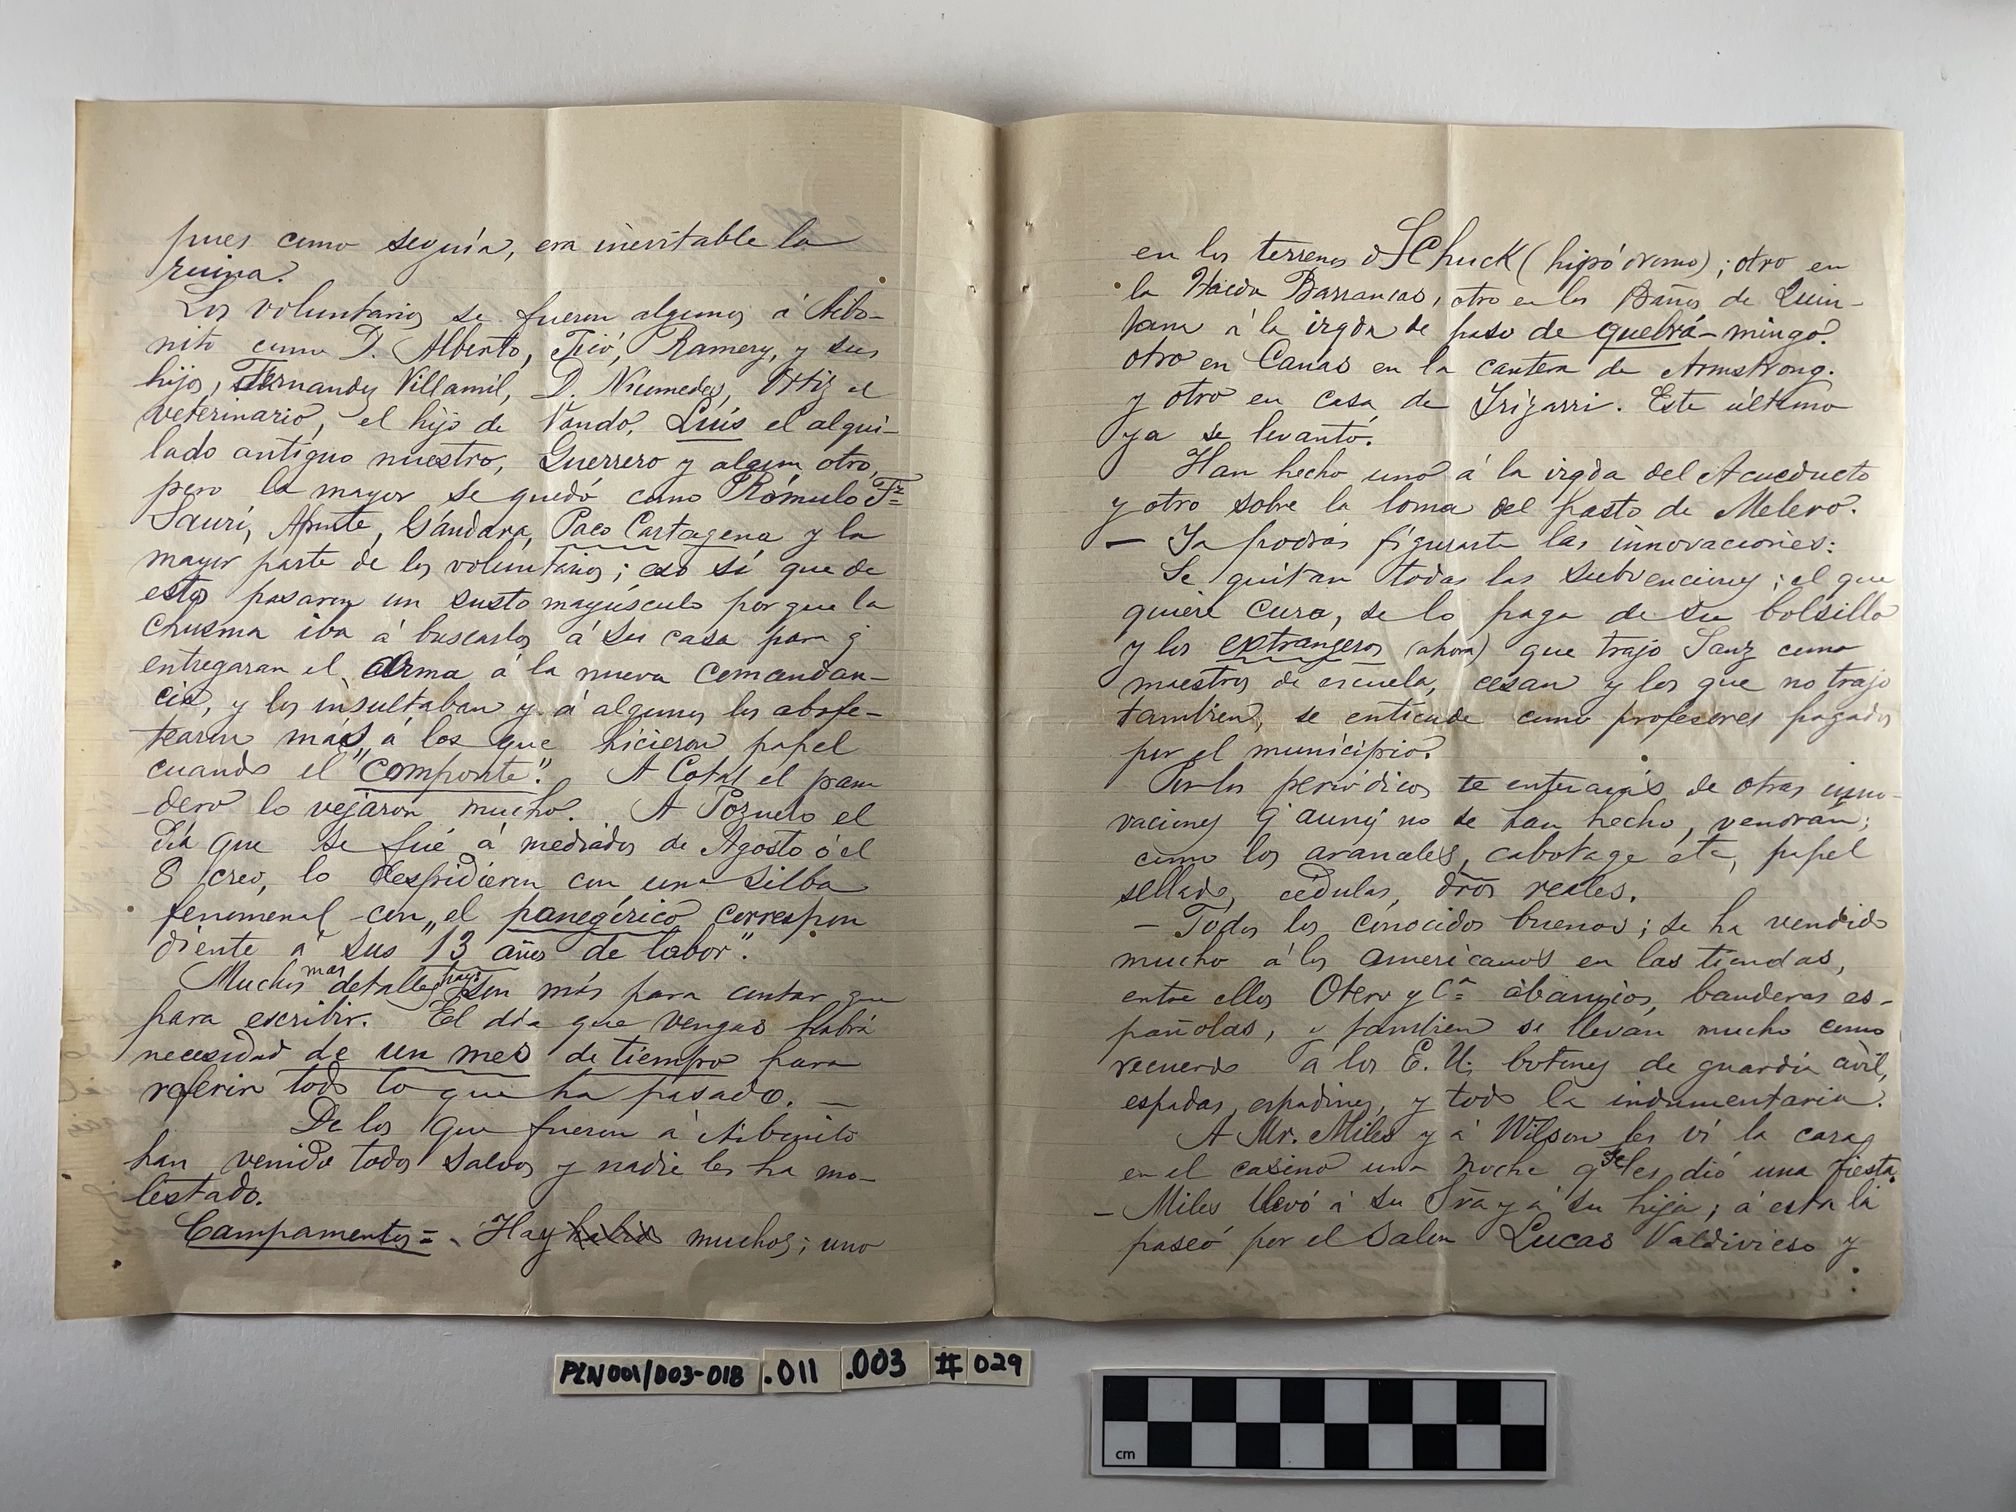 pues como seguía, era inevitable la
ruina.
Los voluntarios se fueron algunos á Aibo-
nito como D. Alberto, Tió, Ramery, y sus
hijos, Fernandez Villamil, D. Nicomedes, Ortiz el
veterinario, el hijo de Vando, Luís el alqui-
lado antiguo nuestro, Guerrero y algun otro,
pero la mayor se quedó como Rómulo
Saurí, Aponte, Gándara, Paco Cartagena y la
mayor parte de los voluntarios; eso sí que de
estos pasaron un susto mayúsculo porque la
chusma iba á buscarlos á su casa para q
entregaran el arma á la nueva Comandan-
cia, y los insultaban y á algunos los abofe-
tearon más á los que hicieron papel
cuando el "componte". A Cotal el pana
-dero lo vejaron mucho. A Pozuelo el
día que se fué á mediados de Agosto ó el
8 creo, lo despidieron con una silba
fenomenal con „el panegírico correspon
diente á sus 13 años de labor".
Muchos mas detalles hay; son más para contar que
para escribir. El dia que vengas habrá
necesidad de un mes de tiempo para
referir todo lo que ha pasado. —
De los que fueron á Aibonito
han venido todos salvos y nadie les ha mo-
lestado.
Campamentos = Hay habido muchos; uno
en los terrenos d Schuck (hipódromo); otro en
la Hacda Barrancas, otro en los Baños de Quin-
tana á la izqda de paso de quebrá-mingo.
otro en Canas en la cantera de Armstrong.
y otro en casa de Irizarri. Este último
ya se levantó.
Han hecho uno á la izqda del Acueducto
y otro sobre la loma del pasto de Melero.
— Ya podrás figurarte las innovaciones:
Se quitan todas las subvenciones; el que
quiere cura, se lo paga de su bolsillo
y los extrangeros (ahora) que trajo Sanz como
maestros de escuela, cesan y los que no trajo
tambien, se entiende como profesores pagados
por el municipio.
Por los periódicos te enterarás de otras inno-
vaciones q aunq no se han hecho, vendrán;
como los aranceles, cabotage etc, papel
sellado, cédulas, dros reales.
— Todos los conocidos buenos; se ha vendido
mucho á los americanos en las tiendas,
entre ellos Otero y Ca= abanicos, banderas es-
pañolas, y tambien se llevan mucho como
recuerdo á los E. U. botones de guardia civil,
espadas, espadines, y toda la indumentaria.
A Mr. Miles y á Wilson les vi la cara
en el casino una noche q se les dió una fiesta.
— Miles llevó á su Sra y á su hija; á esta la
paseó por el salon Lucas Valdivieso y
PLN001/003-018 .011 .003 # 029
cm